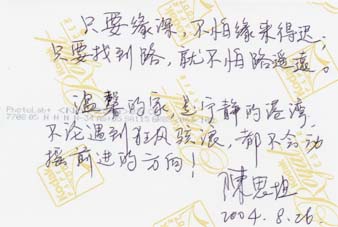 只要缘深，不怕缘来得迟；
只要找到路，就不怕路遥远。
温馨的家，是宁静的港湾，
不论遇到狂风骇浪，都不会动
摇前进的方向！
陳思坦
2004.8.26.